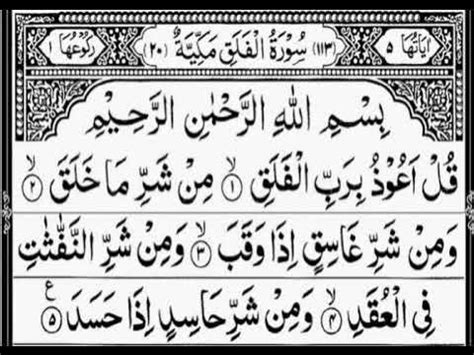 اٰیَاتُهَا ۵ (۱۱۳) سُوْرَةُ الْفَلَقِ مَكِّیَّةٌ (۲۰) رُكُوْعُهَا ۱
بِسْمِ اللّٰهِ الرَّحْمٰنِ الرَّحِیْمِ
قُلْ اَعُوْذُ بِرَبِّ الْفَلَقِ ۙ‏﴿۱﴾ مِنْ شَرِّ مَا خَلَقَ ۙ‏﴿۲﴾
وَ مِنْ شَرِّ غَاسِقٍ اِذَا وَقَبَ ۙ‏﴿۳﴾ وَ مِنْ شَرِّ النَّفّٰثٰتِ
فِی الْعُقَدِ ۙ‏﴿۴﴾ وَ مِنْ شَرِّ حَاسِدٍ اِذَا حَسَدَ ﴿۵﴾ ع